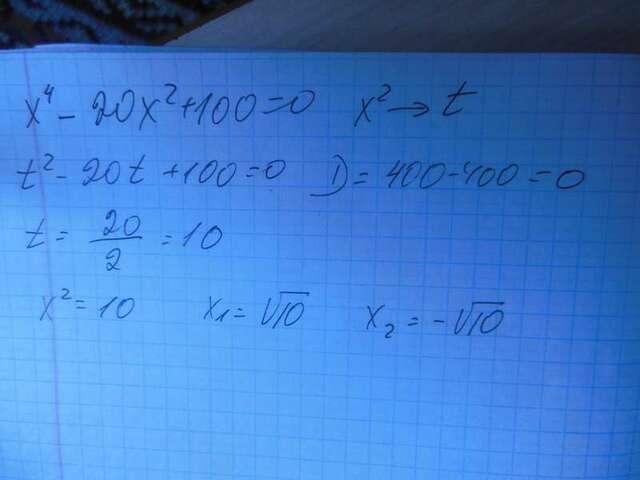 x⁴ - 20x² + 100 = 0 x² → t
t² - 20t + 100 = 0 D = 400 - 400 = 0
t = 20/2 = 10
x² = 10 x₁ = √10 x₂ = -√10